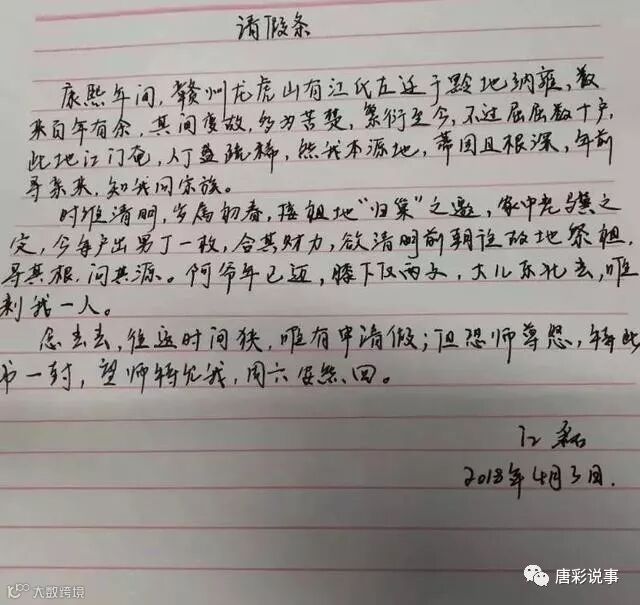 请假条
康熙年间，赣州龙虎山有江氏左迁于黔地纳雍，数
来百年有余，其间变故，多为苦楚，繁衍至今，不过屈屈数十户，
此地江门奄，人丁益疏稀，然我本源地，蒂固且根深，年前
寻亲来，知我同宗族。
时维清明，岁属初春，接祖地“归巢”之邀，家中老
定，今每户出男丁一枚，合其财力，欲清明前朝诣故地祭祖，
寻其根，问其源。阿爷年已迈，膝下仅两子，大儿东北去，唯
剩我一人。
念去去，往返时间狭，唯有申请假；但恐师尊怒，特奉此
书一封，望师特允我，周六安然回。
江磊
2018年4月3日.
大数跨境
唐彩说事